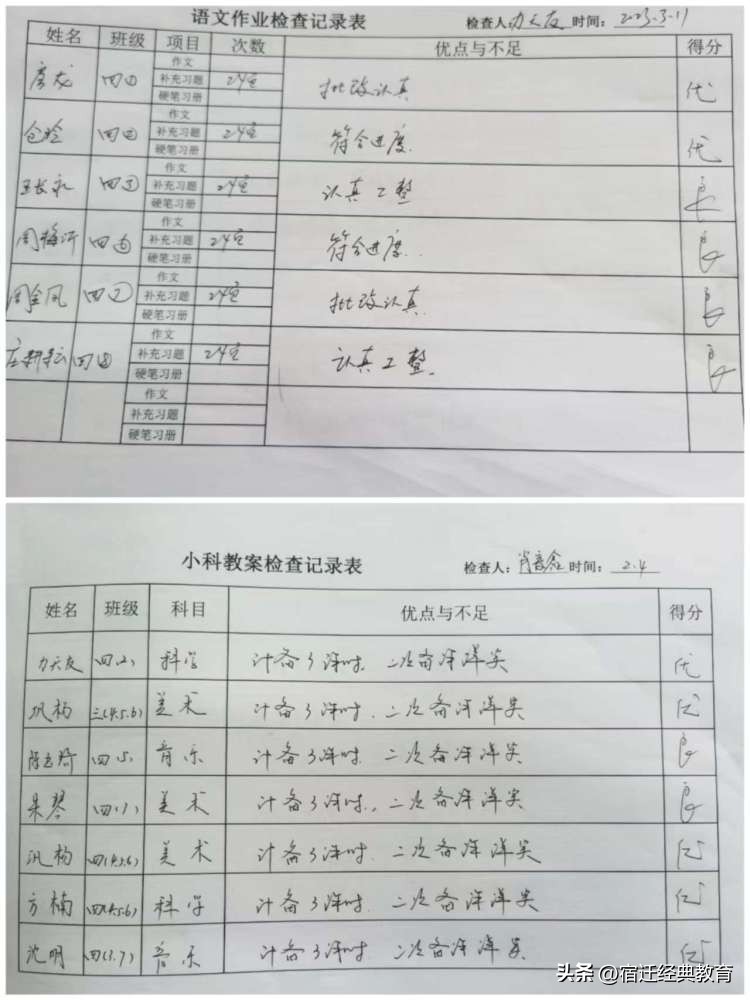 语文作业检查记录表 检查人: 力天友 时间: 2023.3.11
姓名 班级 项目 次数 优点与不足 得分
彦龙 四① 作文 补充习题 24课 硬笔习册 批改认真 优
仓晗 四② 作文 补充习题 硬笔习册 符合进度. 优
王长永 四③ 作文 补充习题 硬笔习册 认真工整 良
周梅沂 作文 补充习题 硬笔习册 符合进度. 良
周金凤 作文 补充习题 硬笔习册 批改认真. 良
庄耕耘 作文 补充习题 硬笔习册 认真工整. 良
作文
补充习题
硬笔习册
小科教案检查记录表 检查人: 时间: 2.4
姓名 班级 科目 优点与不足 得分
力天友 四(2) 科学 计备3课时. 二次备课详实 优
巩杨 三(4.5.6) 美术 计备3课时. 二次备课详实 优
四(5). 音乐 计备3课时. 二次备课详实 良
朱琴 四(1) 美术 计备3课时. 二次备课详实 良
巩杨 四(4.5.6) 美术 计备3课时. 二次备课详实 优
方楠 四(4.5.6) 科学 计备3课时. 二次备课详实 优
沈明 四(1.7) 音乐 计备3课时. 二次备课详实 优
头条 @宿迁经典教育